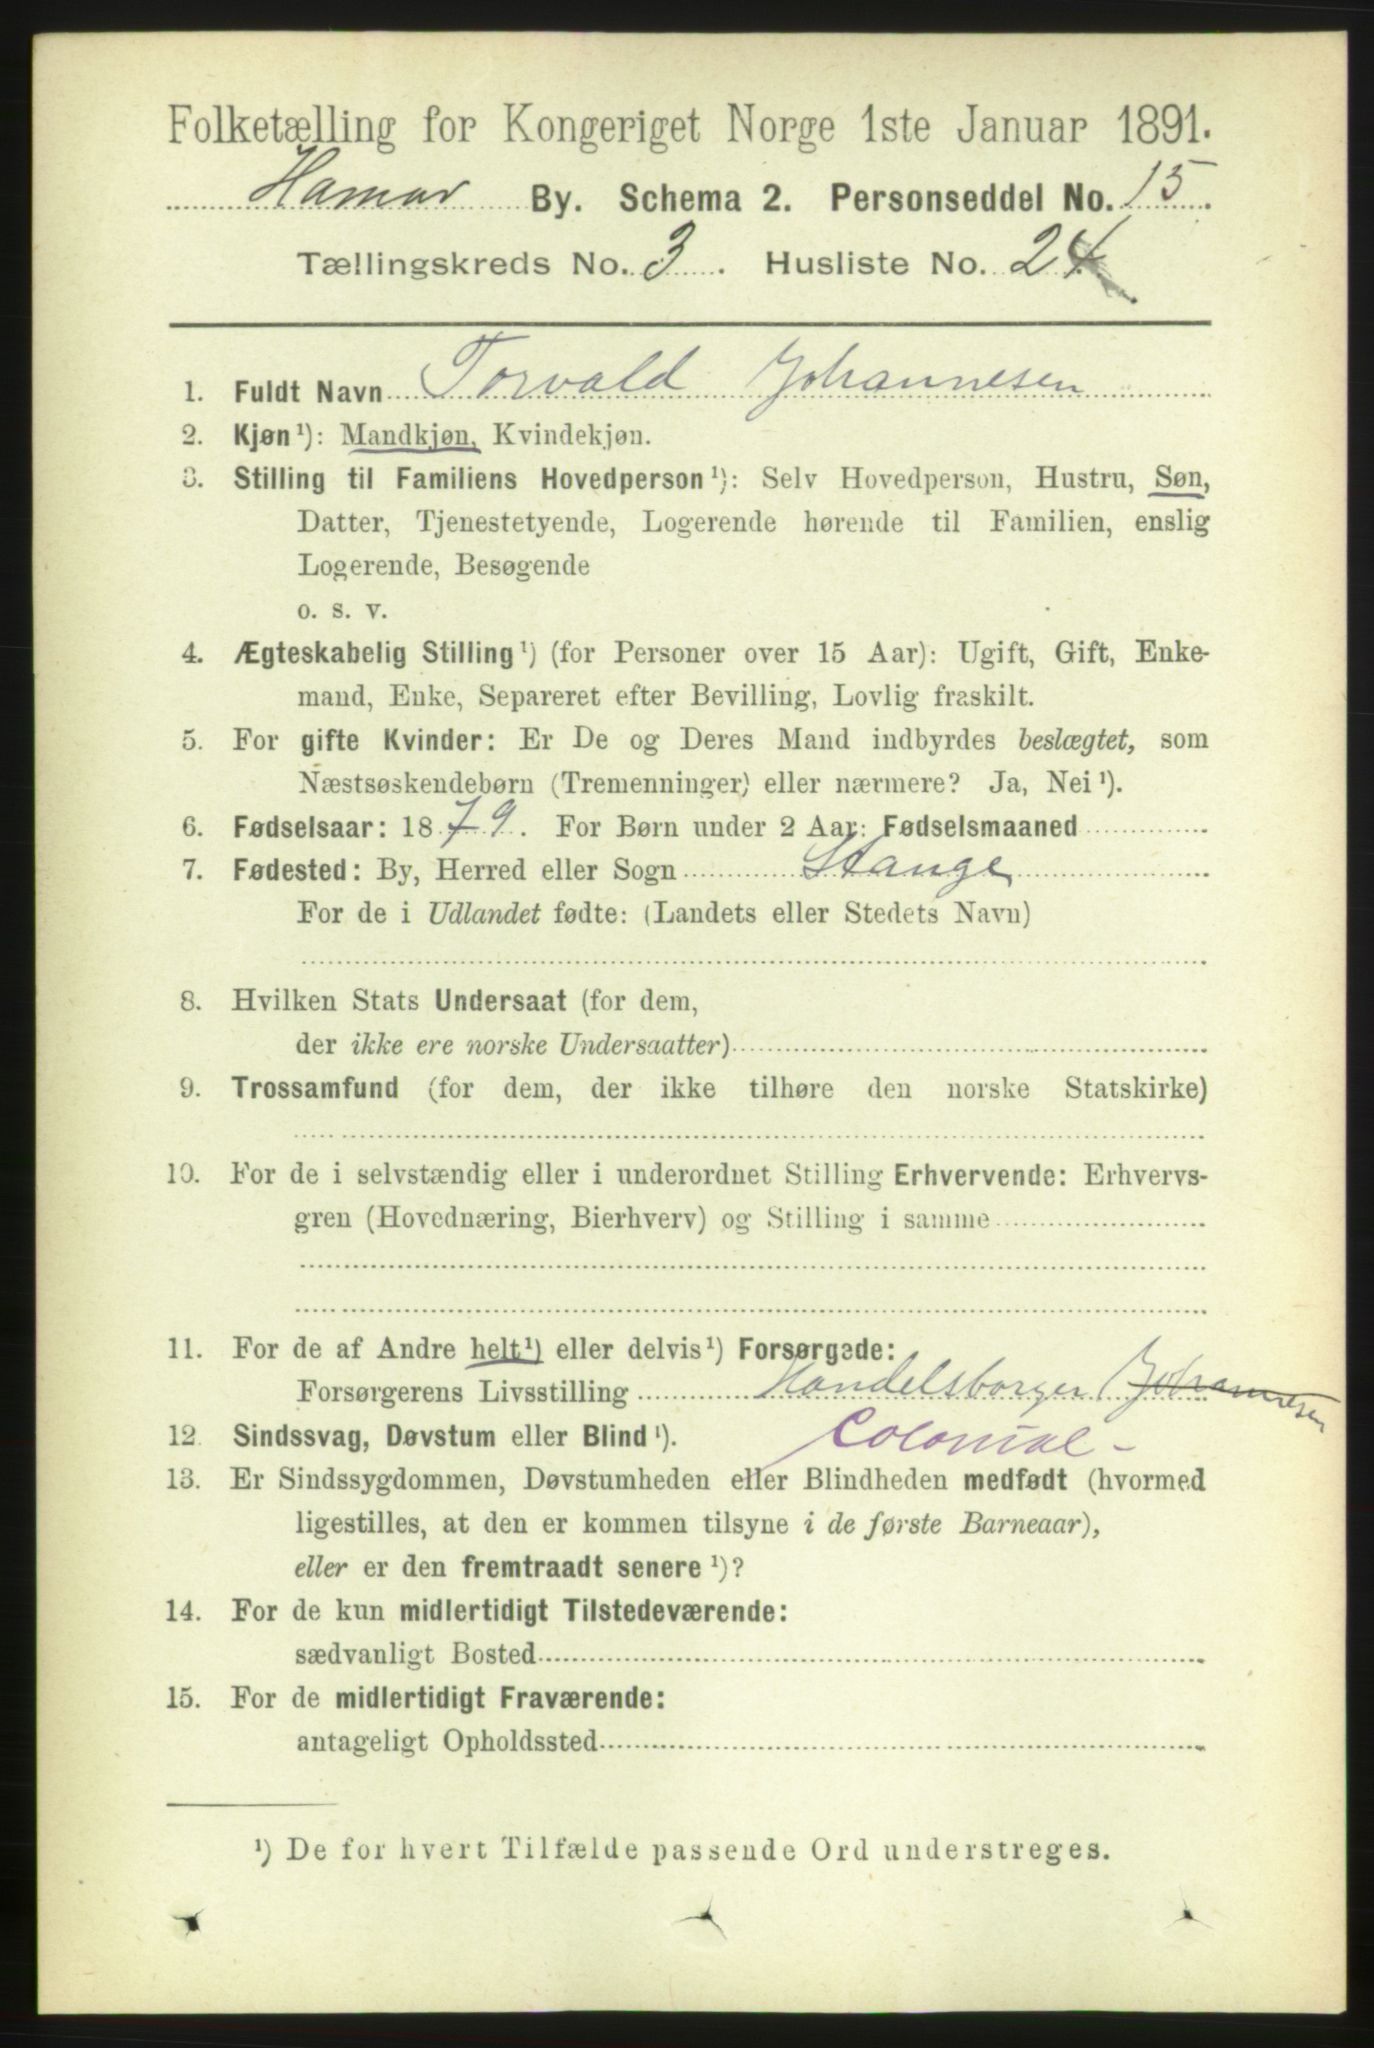 Folketælling for Kongeriget Norge 1ste Januar 1891.
Hamar By. Schema 2. Personseddel No. 15.
Tællingskreds No. 3. Husliste No. 24
1. Fuldt Navn Torvald Johannesen
2. Kjøn¹): Mandkjøn, Kvindekjøn.
3. Stilling til Familiens Hovedperson¹): Selv Hovedperson, Hustru, Søn,
Datter, Tjenestetyende, Logerende hørende til Familien, enslig
Logerende, Besøgende
o. s. v.
4. Ægteskabelig Stilling¹) (for Personer over 15 Aar): Ugift, Gift, Enke-
mand, Enke, Separeret efter Bevilling, Lovlig fraskilt.
5. For gifte Kvinder: Er De og Deres Mand indbyrdes beslægtet, som
Næstsøskendebørn (Tremenninger) eller nærmere? Ja, Nei¹).
6. Fødselsaar: 1879. For Børn under 2 Aar: Fødselsmaaned
7. Fødested: By, Herred eller Sogn Stange
For de i Udlandet fødte: (Landets eller Stedets Navn)
8. Hvilken Stats Undersaat (for dem,
der ikke ere norske Undersaatter)
9. Trossamfund (for dem, der ikke tilhøre den norske Statskirke)
10. For de i selvstændig eller i underordnet Stilling Erhvervende: Erhvervs-
gren (Hovednæring, Bierhverv) og Stilling i samme
11. For de af Andre helt¹) eller delvis¹) Forsørgede:
Forsørgerens Livsstilling Handelsborger Johannesen
12. Sindssvag, Døvstum eller Blind¹). Colonial -
13. Er Sindssygdommen, Døvstumheden eller Blindheden medfødt (hvormed
ligestilles, at den er kommen tilsyne i de første Barneaar),
eller er den fremtraadt senere¹)?
14. For de kun midlertidigt Tilstedeværende:
sædvanligt Bosted
15. For de midlertidigt Fraværende:
antageligt Opholdssted
¹) De for hvert Tilfælde passende Ord understreges.